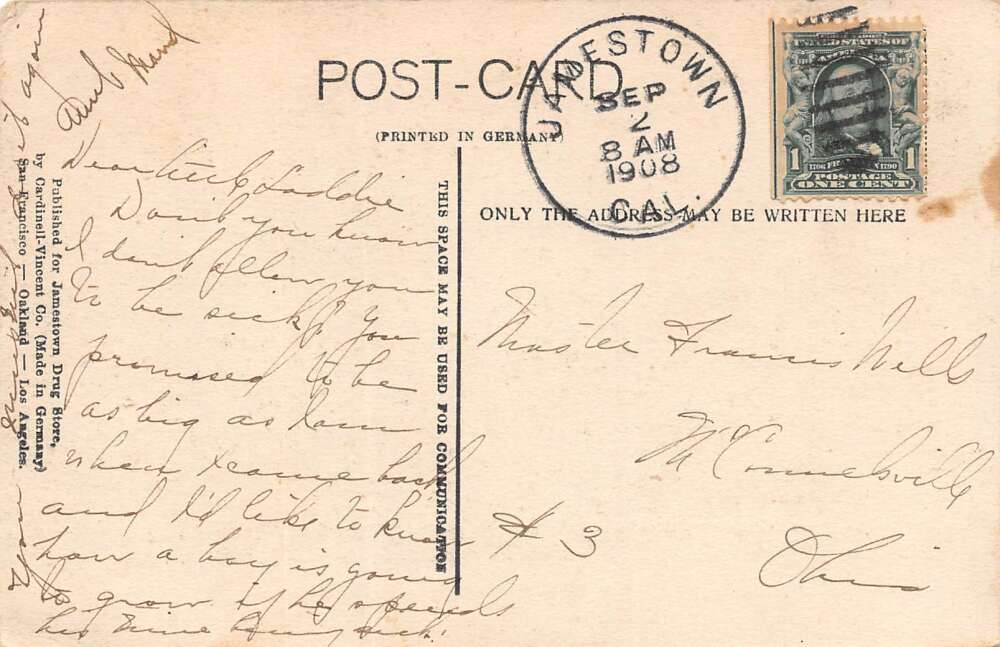 POST-CARD
(PRINTED IN GERMANY)
JAMESTOWN
SEP
2
8 AM
1908
CAL.
UNITED STATES OF
AMERICA
1
1706 FRANKLIN 1790
1
POSTAGE
ONE CENT
ONLY THE ADDRESS MAY BE WRITTEN HERE
THIS SPACE MAY BE USED FOR COMMUNICATION
Published for Jamestown Drug Store,
by Cardinell-Vincent Co. (Made in Germany)
San Francisco — Oakland — Los Angeles.
Dear Little Laddie
Don't you know
I don't allow you
to be sick? You
promised to be
as big as Sam
when I came back
and I'd like to know
how a boy is going
to grow if he spends
his time being sick.
again
Aunt
Master Francis Wills
McConnelsville
# 3
Ohio